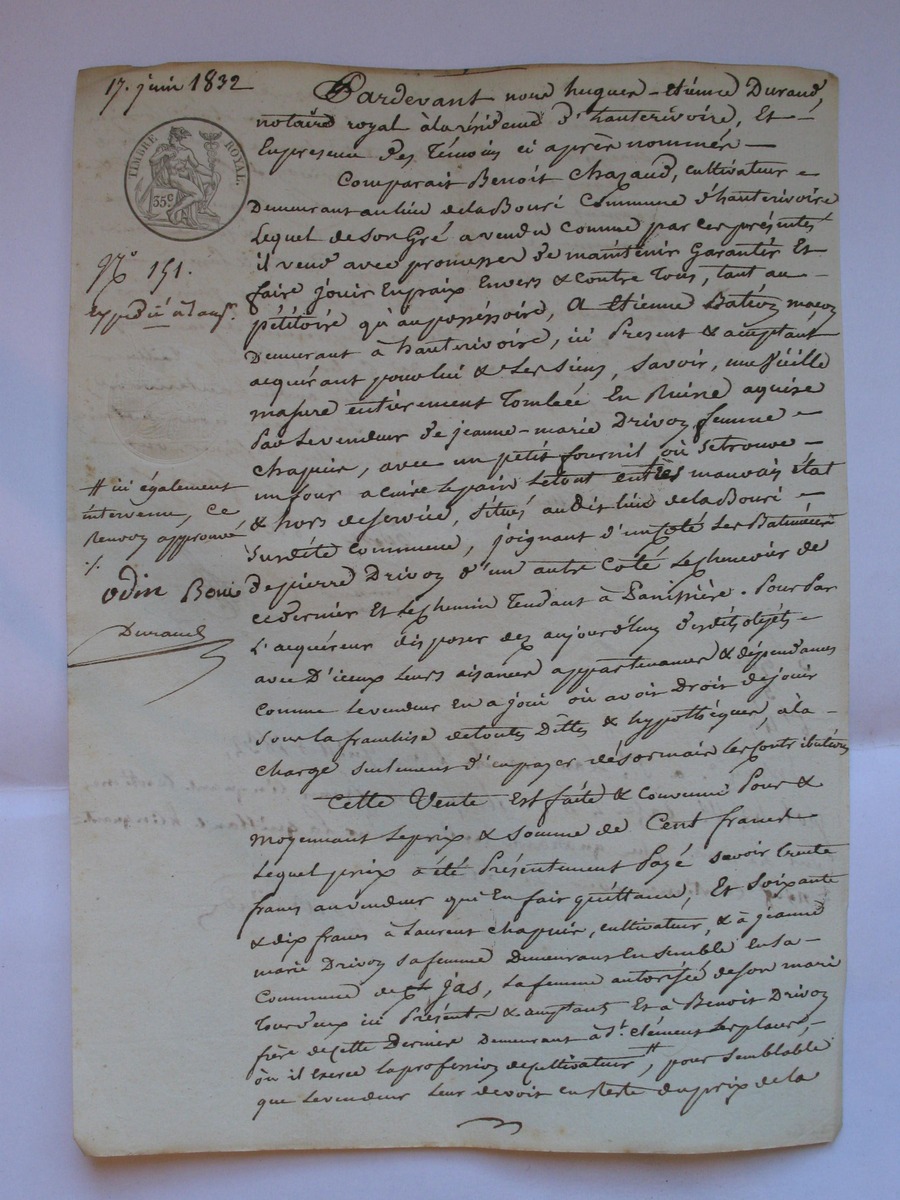 17. juin 1832
TIMBRE ROYAL.
35 c.
No. 151.
expédié
# ici également
intervenu, Ce
Renvoy approuvé
./.
odin Boni
Durand
Pardevant nous hugues-etienne Durand,
notaire royal à la résidence d'hauterivoire, Et
En presence des Témoins ci après nommés
Comparait Benoit Chazaud, cultivateur
Demeurant au lieu de la Bouri Commune d'hauterivoire
Lequel de son Gré a vendu comme par ces présentes
il vend avec promesse de maintenir Garantir Et
faire jouir En paix Envers & contre Tous, tant au
pétitoire qu'au possessoire, A Etienne maçon
Demeurant à hauterivoire, ici Present & acceptant
acquérant pour lui & Les Siens, Savoir, une Vieille
masure entièrement Tombée En Ruine acquise
Par Le vendeur de jeanne-marie Drivoy femme
Chapuis, avec un petit fournil où se trouve
un four a cuire le pain Le tout en très mauvais état
& hors de service, Situés au dit lieu de la Bouri
Susdite Commune, joignant d'un Coté Les Batiments
De pierre Drivoy d'un autre Coté Le Chenevier de
ce dernier Et Le Chemin Tendant à Panissière. Pour Par
L'acquéreur disposer des aujourd'huy desdits objets
avec D'iceux Leurs aisances appartenances & dépendances
Comme Le vendeur En a joui ou avoit Droit de jouir
Sous la franchise de toutes Dittes & hypothèques, à la
Charge seulement d'en payer désormais Les Contributions
Cette Vente Est faite & Convenue Pour &
moyennant Le prix & Somme de Cent francs
Lequel prix a été Présentement Payé savoir trente
francs au vendeur qui En fait quittance, Et Soixante
& dix francs à Laurent Chapuis, cultivateur, & à jeanne
marie Drivoy sa femme Demeurans Ensemble En la
Commune de St. jas, La femme autorisée de son mari
Tous deux ici Présents & acceptants Et à Benoit Drivoy
frère de cette Dernière Demeurant à St. Clément Les places,
où il Exerce la profession de cultivateur #, pour Semblable
que Le vendeur Leur devoit en Reste du prix de la